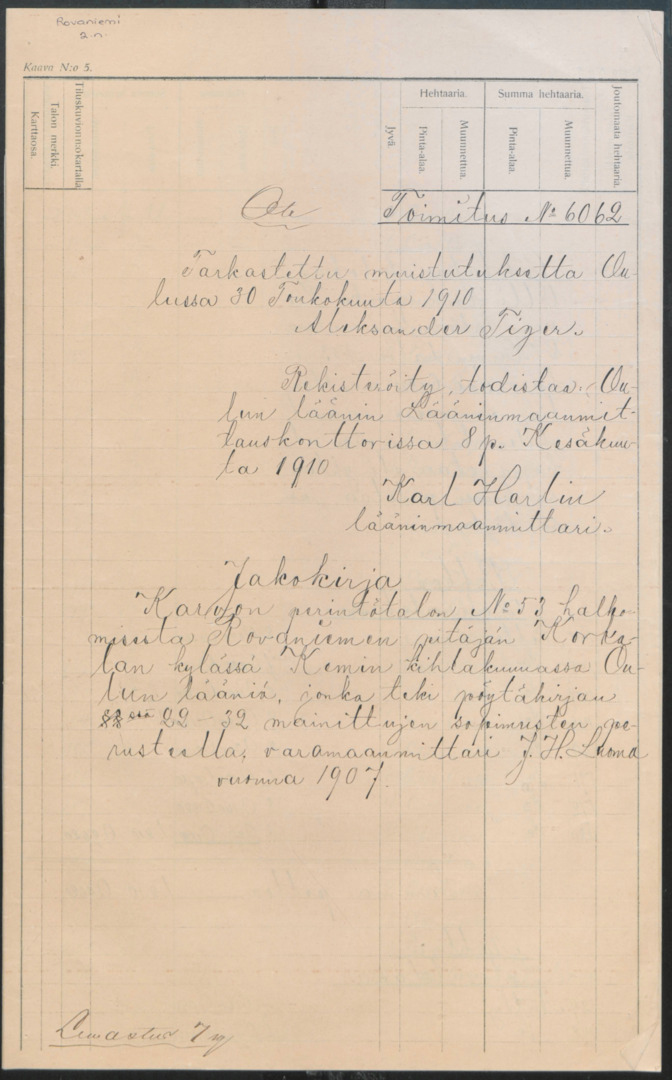 Rovaniemi
2.n.
Kaava N:o 5.
Karttaosa.
Talon merkki.
Tiluskuvion n:o kartalla
Jyvä.
Hehtaaria.
Pinta-alaa.
Muunnettua.
Summa hehtaaria.
Pinta-alaa.
Muunnettua.
Joutomaata hehtaaria.
Ote
Toimitus No 6062
Tarkastettu muistutuksetta Ou-
lussa 30 Toukokuuta 1910
Aleksander Tiger.
Rekisteröity, todistaa: Ou-
lun läänin Lääninmaanmit-
tauskonttorissa 8 p. Kesäkuu-
ta 1910
Karl Harlin
lääninmaanmittari.
Jakokirja
Karvon perintötalon No 53 halko-
misesta Rovaniemen pitäjän Korka-
lan kylässä Kemin kihlakunnassa Ou-
lun lääniä, jonka teki pöytäkirjan
22–32 mainittujen sopimusten pe-
rusteella, varamaanmittari J. H. Luoma
vuonna 1907.
Lunastus 7